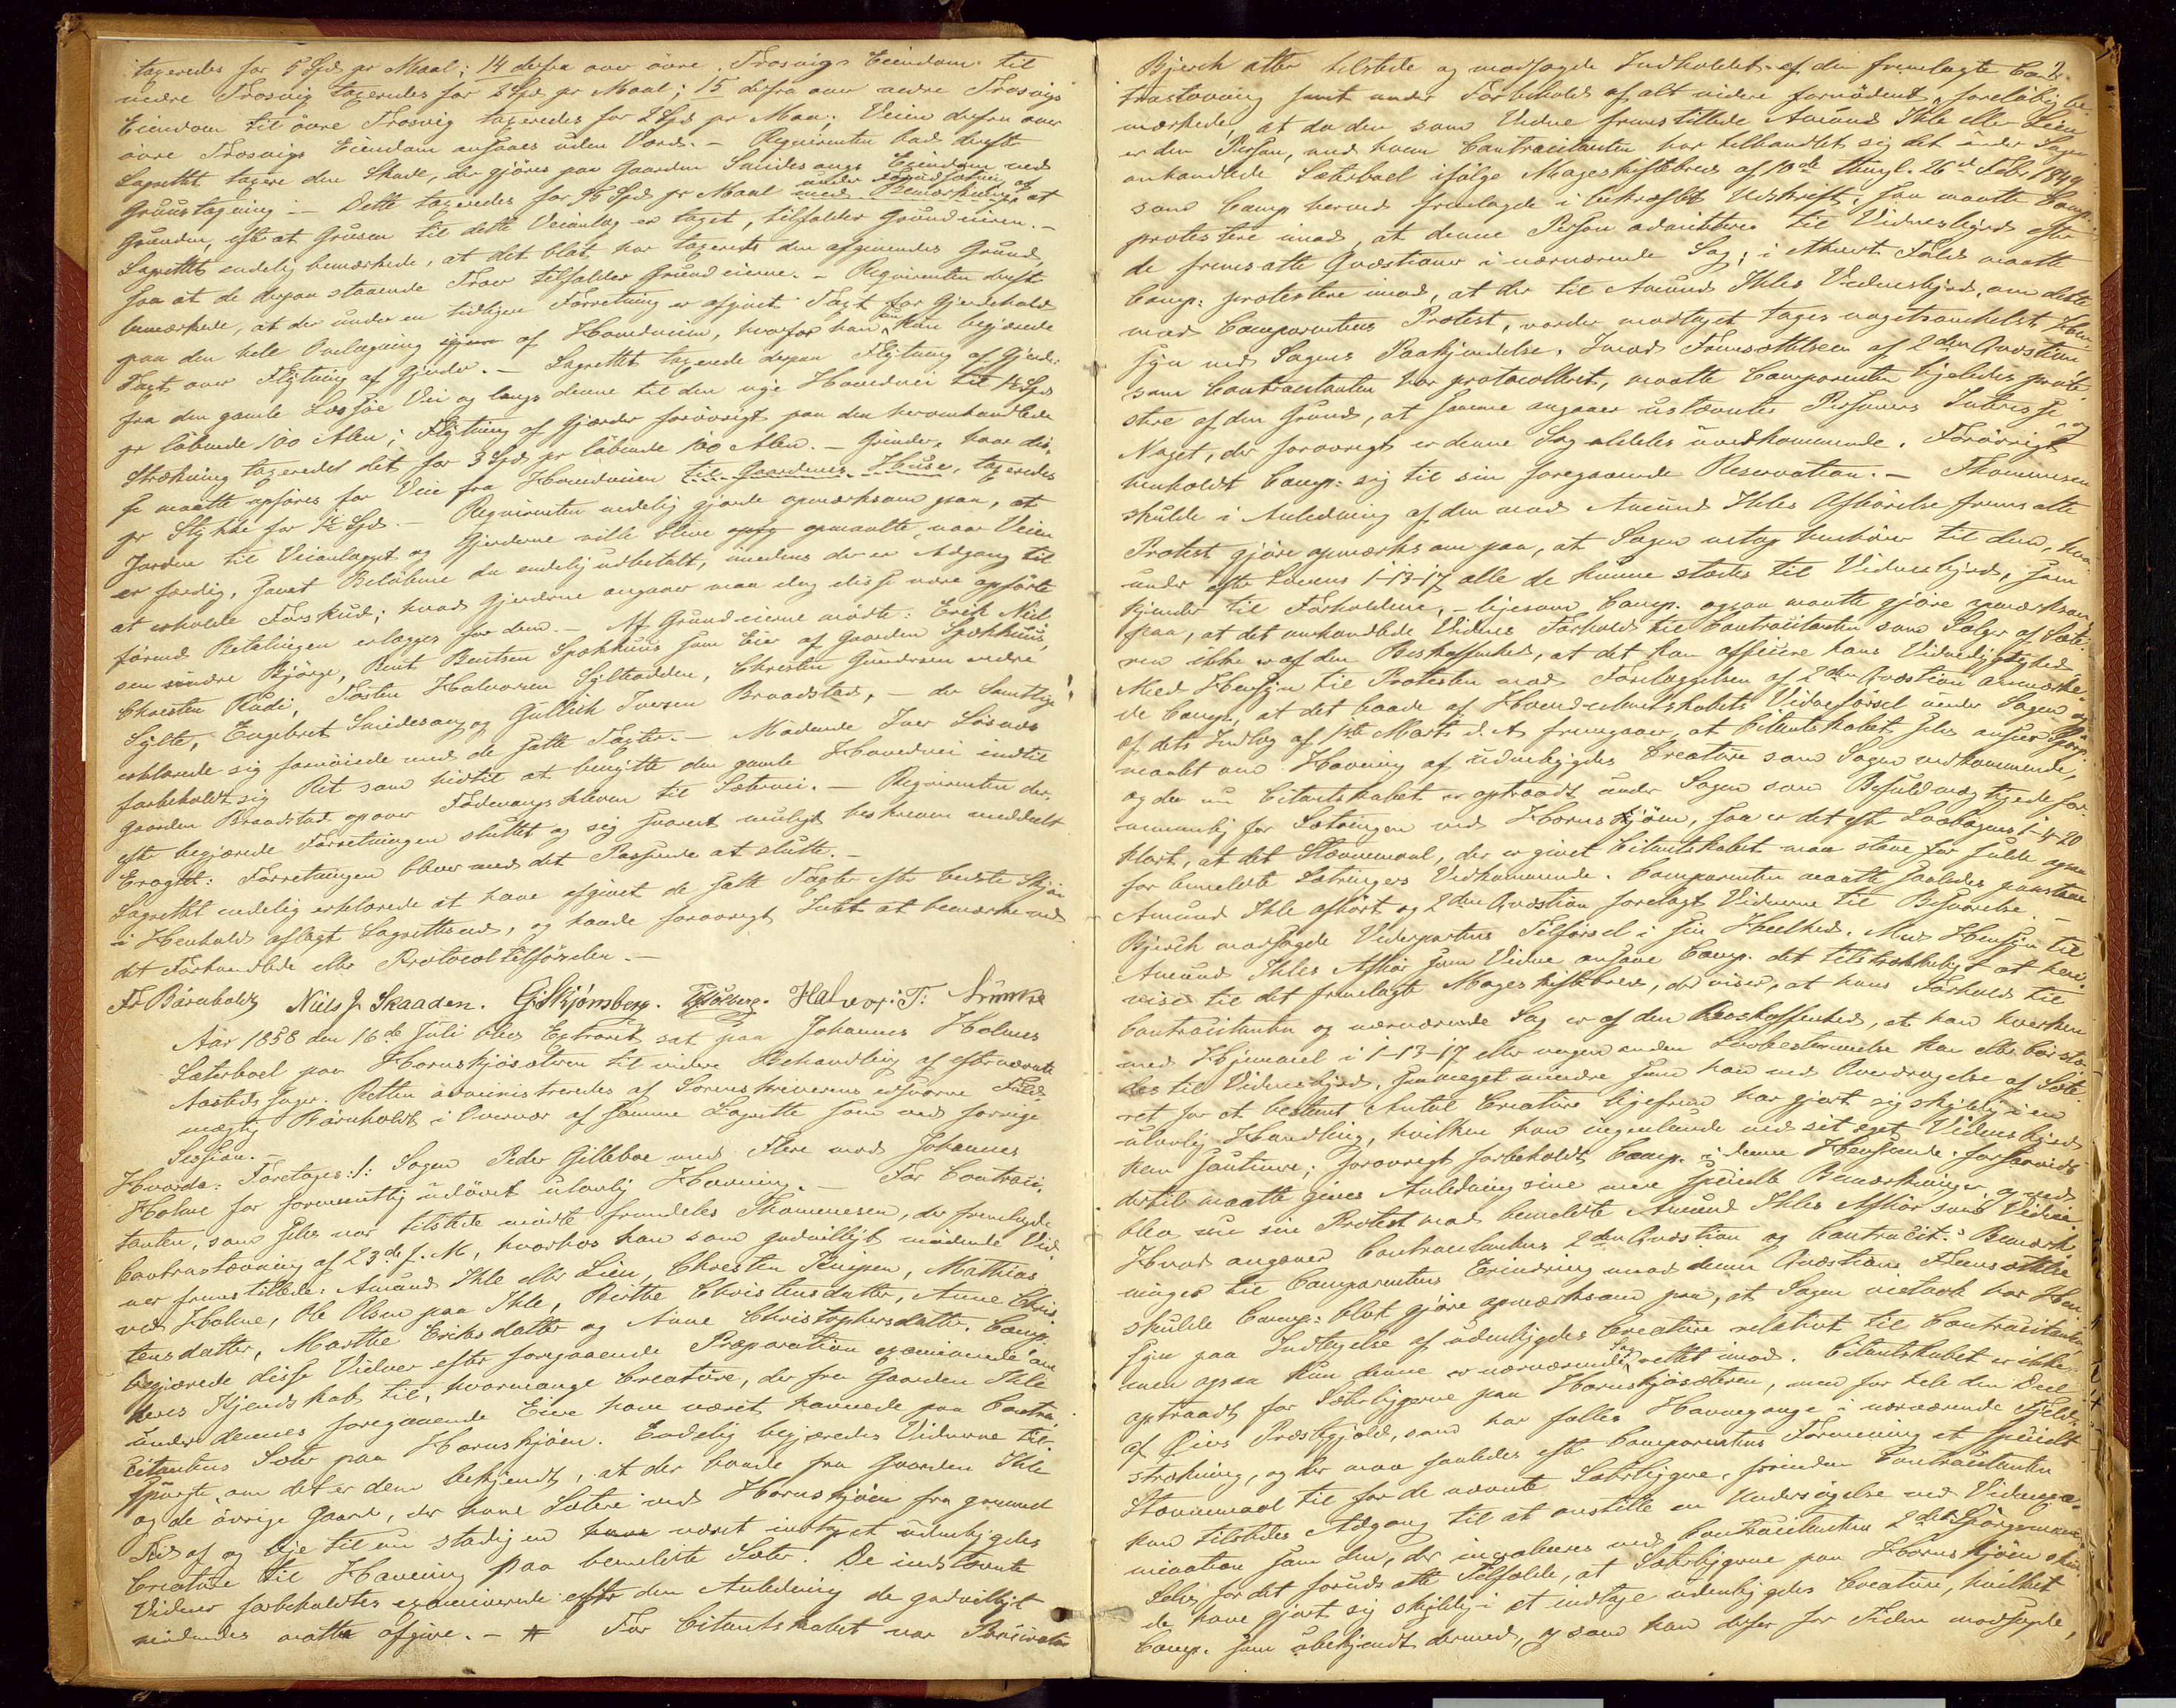 taxeredes for 5 Spd pr Maal; 14 derfra over övre Trosvigs Eiendom til
nedre Trosvig taxeredes for 2 Spd pr Maal; 15 derfra over nedre Trosvigs
Eiendom til övre Trosvig taxeredes for 2 Spd pr Maal; Veien derfra over
övre Trosvigs Eiendom ansaaes uden Værd. – Reqvirenten bad derefter
Lagrettet taxere den Skade, der gjöres paa Gaarden Smidesangs Eiendom ved
Gruustagning. – Dette taxeredes for 95 Spd pr Maal under Forudsætning af at
Grunden, efter at Grusen til dette Veianlæg er taget, tilfalder Grundeieren. –
Lagrettet endelig bemærkede, at det blot har taxeret den afgivendes Grund,
saa at de derpaa staaende Træer tilfalder Grundeierne. – Reqvirenten derefter
bemærkede, at der under en tidligere Forretning er afgivet Taxt for Gjerdehold
paa den hele Omlægning af Hovedveien, hvorfor han nu kun begjærede
Taxt over Flytning af Gjerder. – Lagrettet taxerede derpaa Flytning af Gjerde
fra den gamle Lossöe Vei og langs denne til den nye Hovedvei til 1½ Spd
pr löbende 100 Alen; Flytning af Gjerder forövrigt paa den heromhandlede
Strækning taxeredes det for 3 Spd pr löbende 100 Alen. – Grinder, hvor dis-
se maatte opföres for Veie fra Hovedveien til Gaardenes Huse, taxeredes
pr Stykke for 1½ Spd. – Reqvirenten endelig gjorde opmærksom paa, at
Jorden til Veianlægget og Gjerderne ville blive opmaalte, naar Veien
er færdig, samt Belöbene da endelig udbetalt, imedens der er Adgang til
at erholde Forskud; hvad Gjerderne angaaer maa dog disse være opförte
förend Betalingen erlægges for dem. – Af Grundeierne mödte: Erik Niel-
sen söndre Björge, Bent Bentsen Spækhuus som Eier af Gaarden Spækhuus,
Christen Rudi, Torsten Halvorsen Sylteodden, Christen Gundersen nedre
Sylte, Engebret Smidesang og Gullich Iversen Braadstad, – der samtlige
erklærede sig fornöiede med de satte Taxter. – Mödende Iver Losnæs
forbeholdt sig Ret som hidtil at benytte den gamle Hovedvei indtil
Gaarden Braadstad op over Födevangskleven til Sætervei. – Reqvirenten der-
efter begjærede Forretningen sluttet og sig snarest muligt beskreven meddelt
Eragtet: Forretningen bliver med det Passerede at slutte. –
Lagrettet endelig erklærede at have afgivet de satte Taxter efter bedste Skjön
i Henhold aflagt Lagrettesed, og havde forövrigt Intet at bemærke ved
det Forhandlede eller Protocoltilförselen. –
Fr Bärnholdt Niels J. Skaaden. G. Skjønsberg. Halvor T:
Aar 1858 den 16de Juli blev Extraret sat paa Johannes Holmes
Sæterboel paa Hornsjösæteren til videre Behandling af efternævnte
Aastedssager. Retten administreredes af Sorenskriverens edsvorne Fuld-
mægtig Bärnholdt i Overvær af samme Lagrette som ved forrige
Session. –
Hvorda: Foretages: 1: Sagen Peder Gilleboe med Flere mod Johannes
Holme for formeentlig udövet ulovlig Havning. – For Contraci-
tanten, som selv var tilstede mödte fremdeles Thommesen, der fremlagde
Contrastævning af 23de f. M., hvorhos han som godvilligt mödende Vid-
ner fremstillede: Amund Ihle eller Lien, Christen Knipen, Mathias
ved Holme, Ole Olsen paa Ihle, Berthe Christensdatter, Anne Chris-
tensdatter, Marthe Eriksdatter og Anne Christophersdatter. Comp.
begjærede disse Vidner efter foregaaende Præparation examinerede om
deres Kjendskab til, hvormange Creature, der fra Gaarden Ihle
under dennes foregaaende Eiere have været havnede paa Contra-
citantens Sæter paa Hornsjöen. Endelig begjæredes Vidnerne til-
spurgt, om det er dem bekjendt, at der baade fra Gaarden Ihle
og de övrige Gaarde, der have Sætere ved Hornsjöen fra gammel
Tid af og lige til nu stadigen været indtaget udenbygdes
Creature til Havning paa bemeldte Sæter. De indstævnte
Vidner forbeholdtes examinerede efter den Anledning de godvilligt
mödendes maatte afgive. – # For Citantskabet var Procurator
Bjerch atter tilstede og modsagde Indholdet af den fremlagte Con-
trastævning samt under Forbehold af alt videre fornödent, foreløbig be-
mærkede, at da den som Vidne fremstillede Amund Ihle eller Lien
er den Person, med hvem Contracitanten har tilhandlet sig det under Sagen
omhandlede Sæterboel ifölge Mageskiftebrev af 10de thingl. 26de Febr 1844
som Comp. herved fremlagde i bekræftet Udskrift, saa maatte Comp.
protestere imod, at denne Person admitteres til Vidnesbyrd efter
de fremsatte Qvæstioner i nærværende Sag; i ethvert Fald maatte
Comp. protestere imod, at der til Amund Ihles Vidnesbyrd, om dette
mod Comparentens Protest, vorder modtaget tages nogetsomhelst Hen-
syn ved Sagens Paakjendelse. Imod Fremsættelsen af 2den Qvæstion
som Contracitanten har protocolleret, maatte Comparenten ligeledes prote-
stere af den Grund, at samme angaaer ustævnte Personers Interesse og
Noget, der forövrigt er denne Sag aldeles uvedkommende. Forövrigt
henholdt Comp. sig til sin foregaaende Reservation. – Thommesen
skulde i Anledning af den mod Amund Ihles Afhörelse fremsatte
Protest gjöre opmærksom paa, at Sagen netop henhörer til dem, hvor-
under efter Lovens 1-13-17 alle de kunne stædes til Vidnesbyrd, som
kjender til Forholdene, – ligesom Comp. ogsaa maatte gjöre opmærksom
paa, at det omhandlede Vidnes Forhold til Contracitanten som Sælger af Sæte-
ren ikke er af den Beskaffenhed, at det kan afficere hans Vidnedygtighed.
Med Hensyn til Protesten mod Forelæggelsen af 2den Qvæstion anmærke-
de Comp., at det baade af Hovedcitantskabets Vidneförsel under Sagen og
af dets Indlæg af 1ste Marts d. A. fremgaaer, at Citantskabet selv anseer Spörgs-
maalet om Havning af udenbygdes Creature som Sagen vedkommende,
og da nu Citantskabet er optraadt under Sagen som Befuldmægtigede for-
nemmelig for Sætringen ved Hornsjöen, saa er det efter Lovbogens 1-4-20
klart, at det Stævnemaal, der er givet Citantskabet maa staae for fulde ogsaa
for bemeldte Sætringers Vedkommende. Comparenten maatte saaledes paastaae
Amund Ihle afhört og 2den Qvæstion forelagt Vidnerne til Besvarelse. –
Bjerch modsagde Vederpartens Tilförsel i sin Heelhed. Med Hensyn til
Amund Ihles Afhör som Vidne ansaae Comp. det tilstrækkeligt at hen-
vise til det fremlagte Mageskiftebrev, der viser, at hans Forhold til
Contracitanten og nærværende Sag er af den Beskaffenhed, at han hverken
med Hjemmel i 1-13-17 eller nogen anden Lovbestemmelse kan eller bör stæ-
des til Vidnesbyrd, saameget mindre som han ved Overdragelse af Sæte-
ret for et bestemt Antal Creature ligefrem har gjort sig skyldig i en
ulovlig Handling, hvilken han ingenlunde ved sit eget Vidnesbyrd
kan sautinere; forövrigt forbeholdt Comp. i denne Henseende, forsaavidt
dertil maatte gives Anledning sine mere specielle Bemærkninger, og ved-
blev nu sin Protest mod bemeldte Amund Ihles Afhör som Vidne.
Hvad angaaer Contracitantens 2den Qvæstion og Contracit.s Bemærk-
ninger til Comparentens Erindring mod denne Qvæstions Fremsættelse
skulde Comp. blot gjöre opmærksom paa, at Sagen vistnok har Hen-
syn paa Indtagelse af udenbygdes Creature relativt til Contracitanten,
men ogsaa kun denne er nærværende Sag rettet imod. Citantskabet er ikke
optraadt for Sæterbygerne paa Hornsjösæteren, men for hele den Deel
af Öiers Præstegjæld, som har fælles Havnegange i nærværende Fjeld-
strækning, og der maa saaledes efter Comparentens Formening et specielt
Stævnemaal til for de nævnte Sæterbygere, förinden Contracitanten
kan tilstedes Adgang til at anstille en Undersögelse ved Vidneexa-
mination som den, der involveres ved Contracitantens 2det Spörgsmaal.
Selv for det forudsatte Tilfælde, at Sæterbygerne paa Hornsjöen skul-
de have gjort sig skyldig i at indtage udenbygdes Creature, hvilket
Comp. som ubekjendt dermed, og som han derfor for Tiden modsagde,